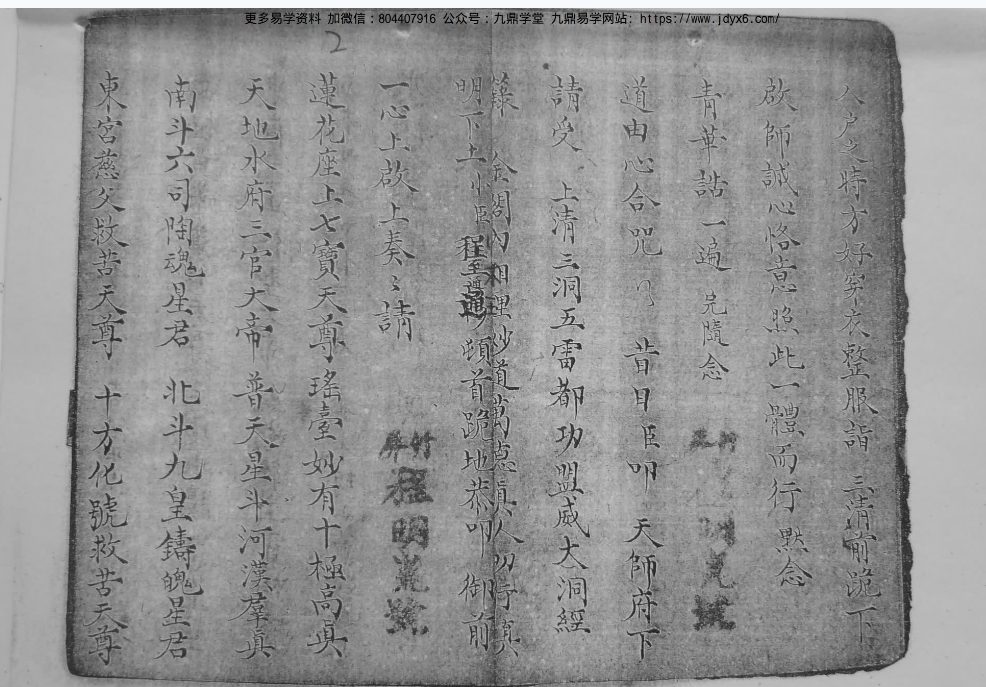 更多易学资料 加微信：804407916 公众号：九鼎学堂 九鼎易学网站：https://www.jdyx6.com/
2
入户之時方好穿衣整服詣 三清前跪下
啟師誠心恪意照此一體而行 黙念
青華誥一遍 隨念
道由心合咒 昔日臣叩 天師府下
請受 上清三洞五雷都功盟威大洞經
籙 金闕内相理妙道萬真人
明下土小臣程至道通 頓首跪地恭叩 御前
一心上啟上奏〻請
程明
蓮花座上七寶天尊 瑤臺妙有十極高真
天地水府三官大帝 普天星斗河漢羣真
南斗六司陶魂星君 北斗九皇鑄魄星君
東宮慈父救苦天尊 十方化號救苦天尊